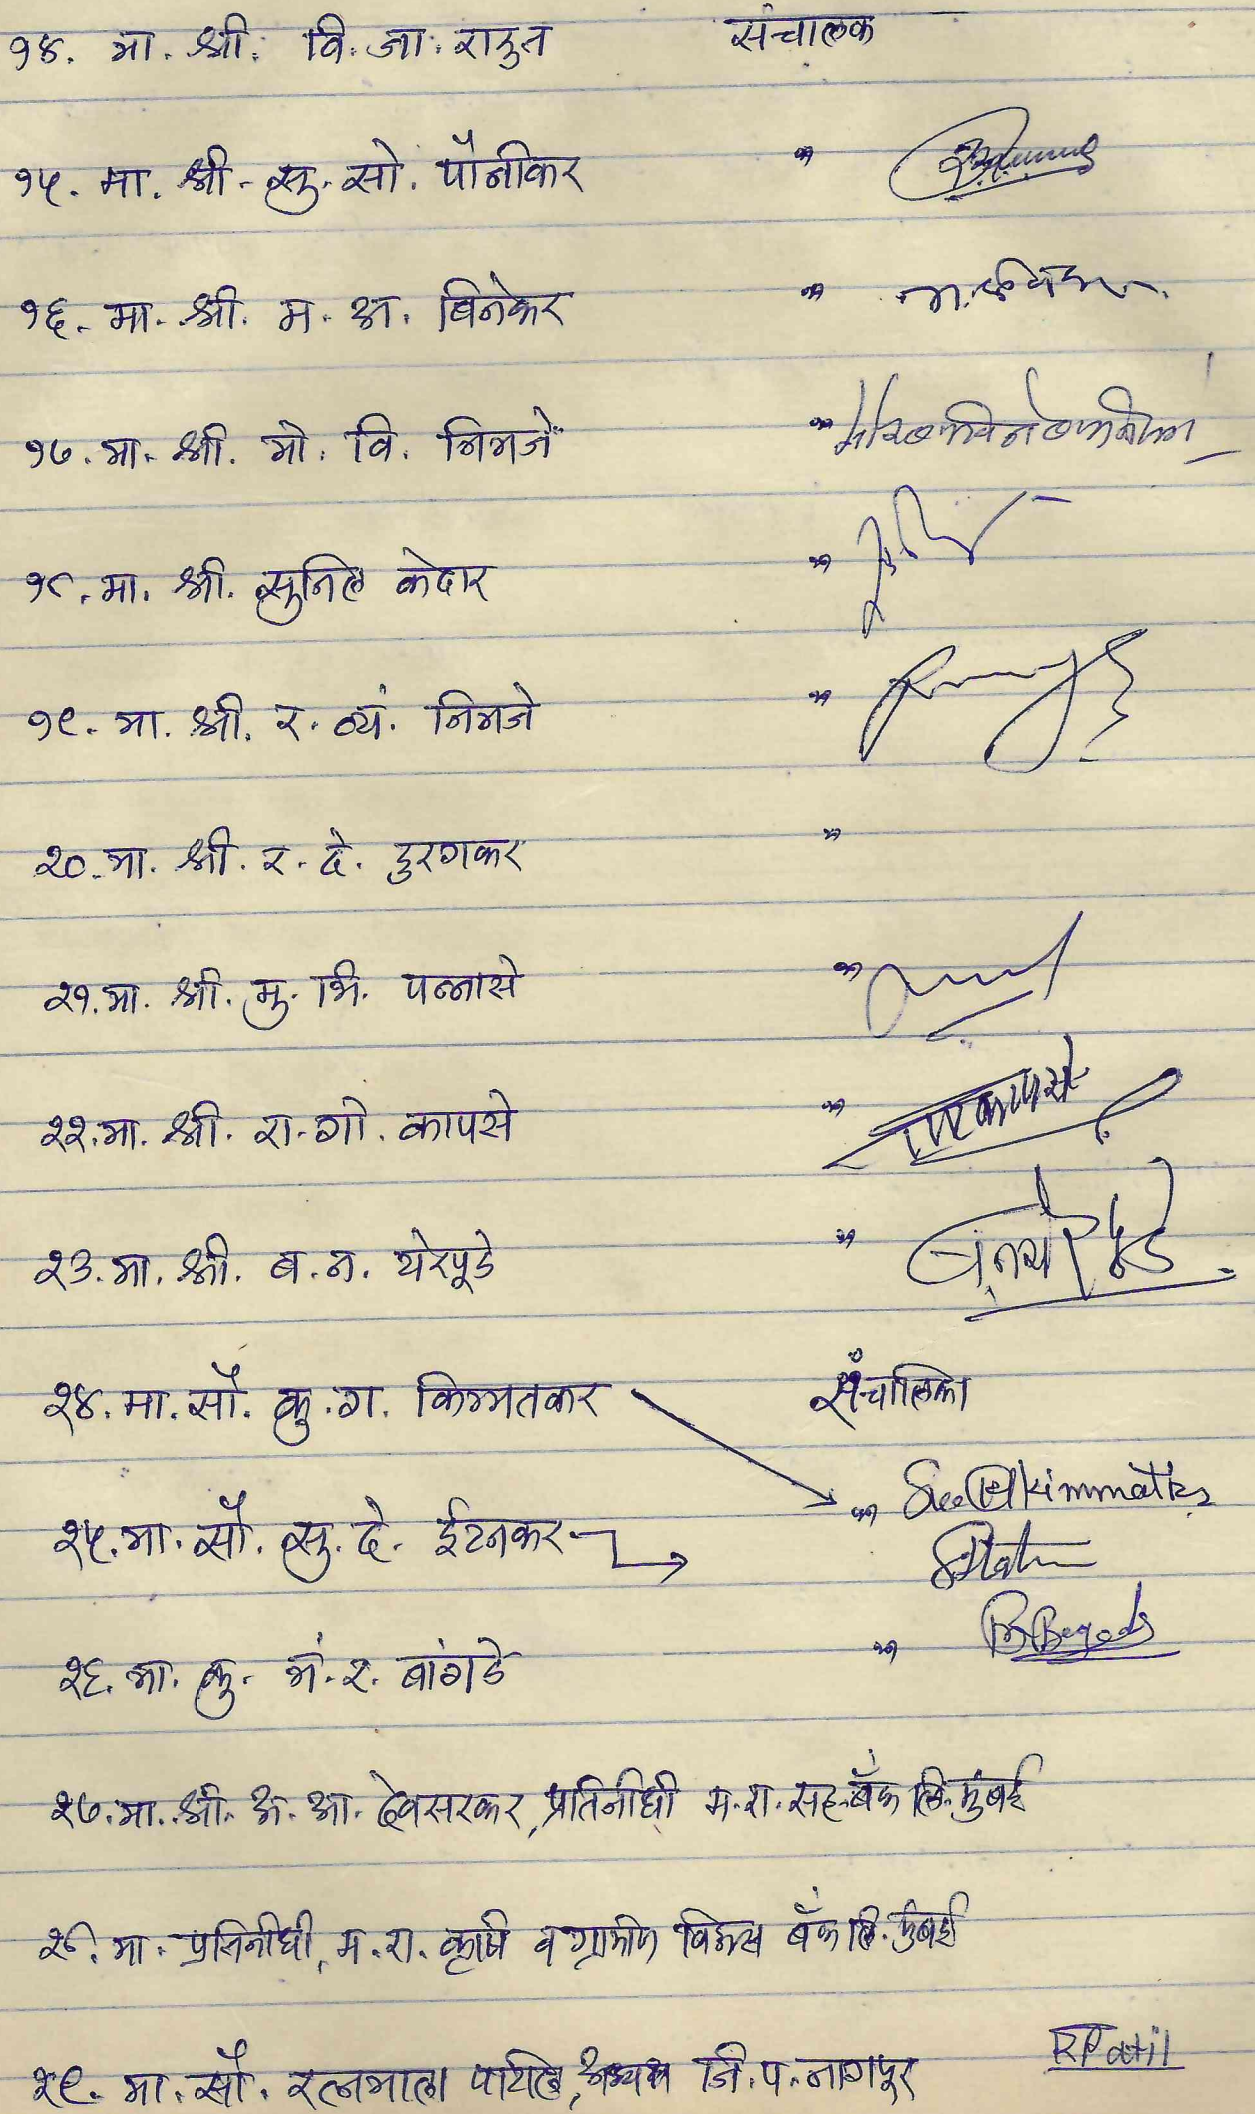 १४. मा. श्री. वि. जा. राऊत संचालक
१५. मा. श्री. सु. सो. पौनीकर "
१६. मा. श्री. म. अ. बिनेकर "
१७. मा. श्री. मो. वि. निमजे "
१८. मा. श्री. सुनिल केदार "
१९. मा. श्री. र. व्यं. निमजे "
२०. मा. श्री. र. दे. दुरगकर "
२१. मा. श्री. मु. भि. पन्नासे "
२२. मा. श्री. रा. गो. कापसे "
२३. मा. श्री. ब. न. येरपूडे "
२४. मा. सौ. कु. ग. किम्मतकर संचालिका
२५. मा. सौ. सु. दे. ईटनकर "
२६. मा. कु. मं. र. बांगडे "
२७. मा. श्री. अ. आ. देवसरकर, प्रतिनीधी म. रा. सह. बँक लि. मुंबई
२८. मा. प्रतिनीधी, म. रा. कृषि व ग्रामीण विकास बँक लि. मुंबई
RPatil
२९. मा. सौ. रत्नमाला पाटील, अध्यक्ष जि. प. नागपूर